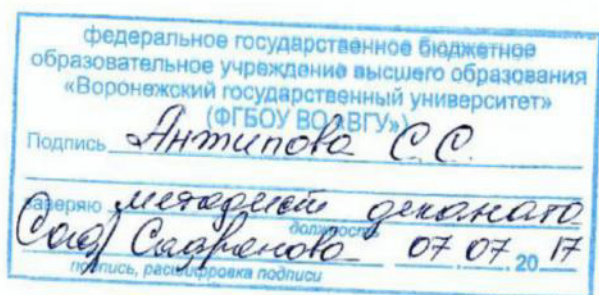 федеральное государственное бюджетное
образовательное учреждение высшего образования
«Воронежский государственный университет»
(ФГБОУ ВО «ВГУ»)
Подпись Антипова С.С.
заверяю методист деканата
должность
07 07 20 17
подпись, расшифровка подписи